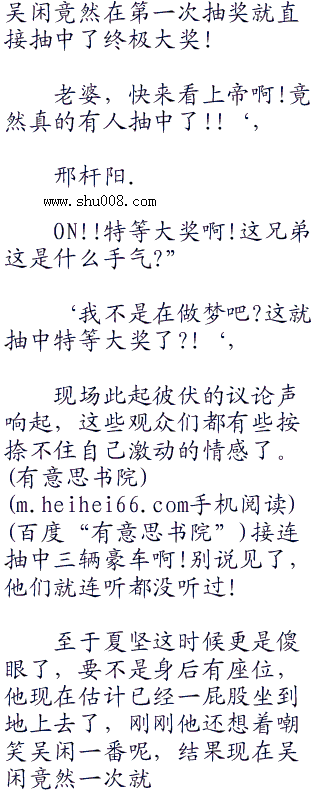 吴闲竟然在第一次抽奖就直
接抽中了终极大奖!
老婆，快来看上帝啊!竟
然真的有人抽中了!!‘,
邢杆阳.
www.shu008.com
ON!!特等大奖啊!这兄弟
这是什么手气?”
‘我不是在做梦吧?这就
抽中特等大奖了?!‘,
现场此起彼伏的议论声
响起，这些观众们都有些按
捺不住自己激动的情感了。
(有意思书院)
(m.heihei66.com手机阅读)
(百度“有意思书院”)接连
抽中三辆豪车啊!别说见了，
他们就连听都没听过!
至于夏坚这时候更是傻
眼了，要不是身后有座位，
他现在估计已经一屁股坐到
地上去了，刚刚他还想着嘲
笑吴闲一番呢，结果现在吴
闲竟然一次就